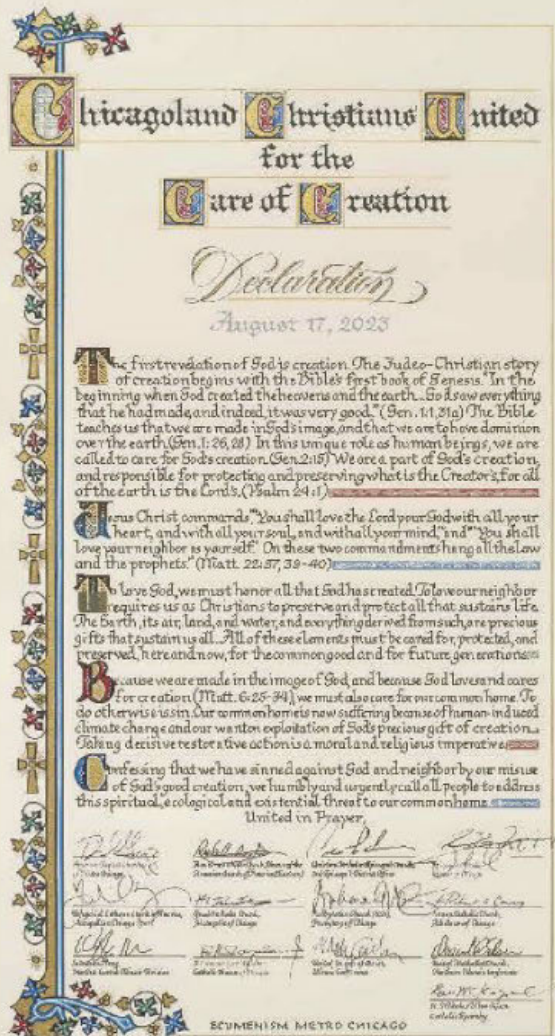 Chicagoland Christians United
for the
Care of Creation
Declaration
August 17, 2023
The first revelation of God is creation. The Judeo-Christian story
of creation begins with the Bible's first book of Genesis. "In the
beginning when God created the heavens and the earth... God saw everything
that he had made, and indeed, it was very good." (Gen. 1:1, 31a) The Bible
teaches us that we are made in God's image, and that we are to have dominion
over the earth (Gen. 1:26, 28) In this unique role as human beings, we are
called to care for God's creation (Gen. 2:15) We are a part of God's creation,
and responsible for protecting and preserving what is the Creator's, for all
of the earth is the Lord's. (Psalm 24:1)
Jesus Christ commands, "You shall love the Lord your God with all your
heart, and with all your soul, and with all your mind," and "You shall
love your neighbor as yourself." On these two commandments hang all the law
and the prophets." (Matt. 22:37, 39-40)
To love God, we must honor all that God has created. To love our neighbor
requires us as Christians to preserve and protect all that sustains life.
The Earth, its air, land, and water, and everything derived from such, are precious
gifts that sustain us all. All of these elements must be cared for, protected, and
preserved, here and now, for the common good and for future generations.
Because we are made in the image of God, and because God loves and cares
for creation (Matt. 6:25-34), we must also care for our common home. To
do otherwise is sin. Our common home is now suffering because of human-induced
climate change and our wanton exploitation of God's precious gift of creation.
Taking decisive restorative action is a moral and religious imperative.
Confessing that we have sinned against God and neighbor by our misuse
of God's good creation, we humbly and urgently call all people to address
this spiritual, ecological and existential threat to our common home.
United in Prayer,
ECUMENISM METRO CHICAGO